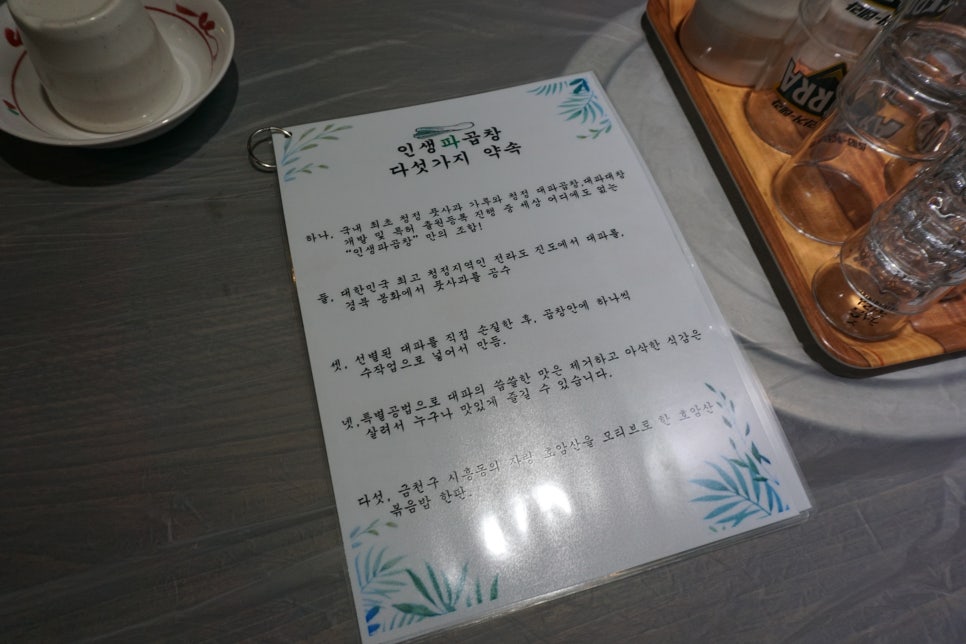 인생파곱창
다섯가지 약속
하나. 국내 최초 청정 풋사과 가루와 청정 대파곱창.대파대창
개발 및 특허 출원등록 진행 중 세상 어디에도 없는
"인생파곱창" 만의 조합!
둘. 대한민국 최고 청정지역인 전라도 진도에서 대파를.
경북 봉화에서 풋사과를 공수
셋. 선별된 대파를 직접 손질한 후. 곱창안에 하나씩
수작업으로 넣어서 만듬.
넷.특별공법으로 대파의 씁쓸한 맛은 제거하고 아삭한 식감은
살려서 누구나 맛있게 즐길 수 있습니다.
다섯. 금천구 시흥동의 자랑 호암산을 모티브로 한 호암산
볶음밥 한판.
RRA